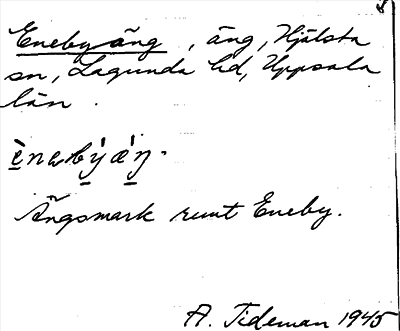 Enebyäng, äng, Hjälsta
sn, Lagunda hd, Uppsala
län.
ènebýǽŋ.
Ängsmark runt Eneby.
A. Tideman 1945